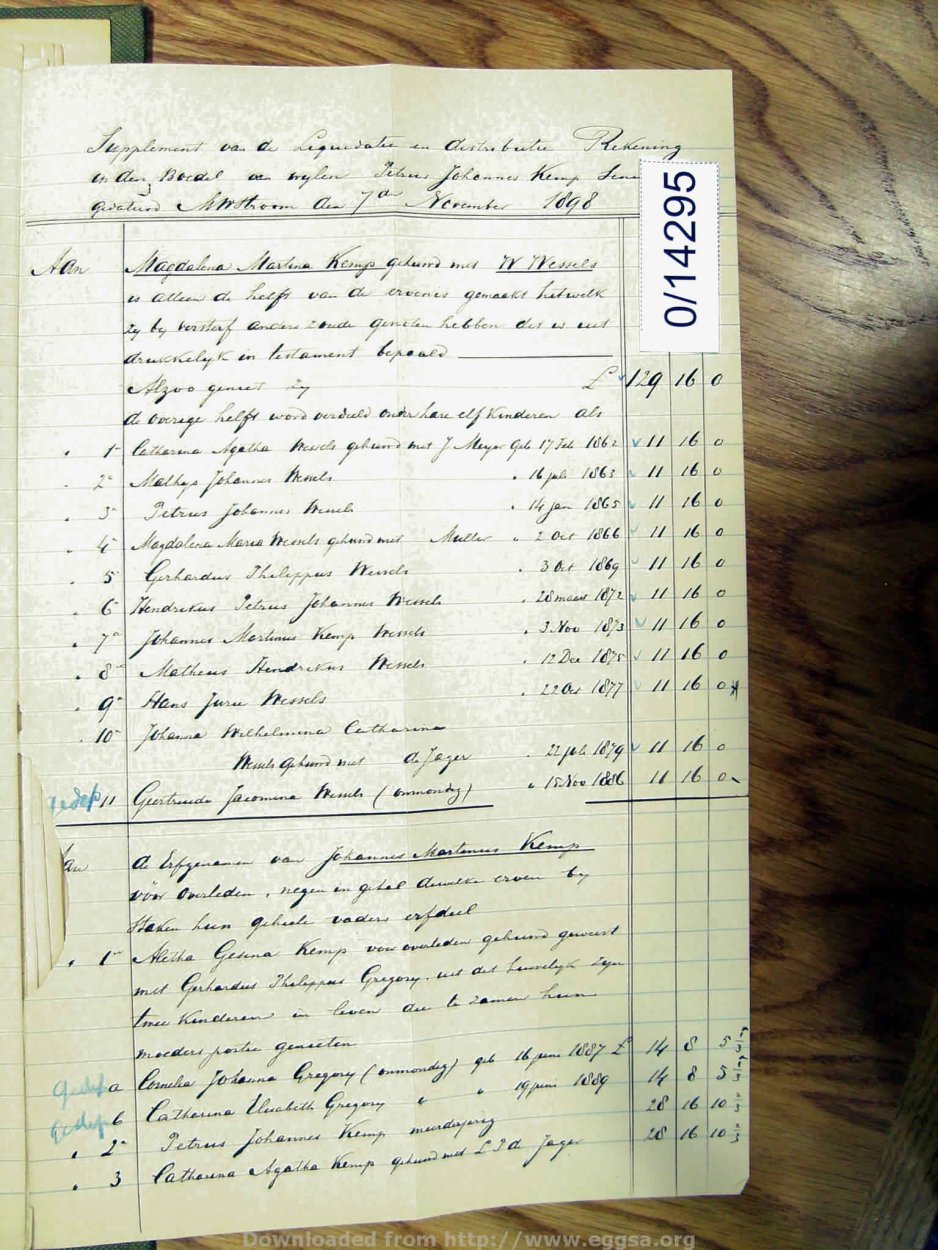 Supplement van de Liquidatie en distributie Rekening
in den Boedel van wylen Petrus Johannes Kemp Sen
gedateerd den 7de November 1898
0/14295
Aan Magdalena Martina Kemp gehuwd met W Wessels
is alleen de helft van de ervenis gemaakt hetwelk
zy by versterf anders zoude genoten hebben dit is uit
drukkelyk in testament bepaald
Alzoo geniet zy £ 129 16 0
de overige helft word verdeeld onder hare elf Kinderen als
1 Catharina Agatha Wessels gehuwd met J Meyer Geb 17 Feb 1862 11 16 0
2 Mathys Johannes Wessels " 16 1863 11 16 0
3 Petrus Johannes Wessels " 14 Jan 1865 11 16 0
4 Magdalena Maria Wessels gehuwd met Muller " 2 Oct 1866 11 16 0
5 Gerhardus Philippus Wessels " 3 Oct 1869 11 16 0
6 Hendrikus Petrus Johannes Wessels " 28 maart 1872 11 16 0
7 Johannes Martinus Kemp Wessels " 3 Nov 1873 11 16 0
8 Matheus Hendrikus Wessels " 12 Dec 1875 11 16 0
9 Hans Jurie Wessels " 22 Oct 1877 11 16 0
10 Johanna Wilhelmina Catharina
Wessels gehuwd met de Jager " 22 1879 11 16 0
gedep 11 Geertruida Jacomina Wessels (onmondig) " 15 Nov 1886 11 16 0
Aan de Erfgenamen van Johannes Martinus Kemp
vóór overleden, negen in getal dewelke erven by
Staken hun geheele vaders erfdeel
" 1 Aletha Gesina Kemp voor overleden gehuwd geweest
met Gerhardus Philippus Gregory, uit dit huwelyk zyn
twee Kinderen in leven die te zamen hun
moeders portie genieten
gedep a Cornelia Johanna Gregory (onmondig) geb 16 juni 1887 £ 14 8 5 1/3
gedep b Catharina Elisabeth Gregory " " 19 juni 1889 14 8 5 1/3
" 2 Petrus Johannes Kemp meerderjarig 28 16 10 2/3
" 3 Catharina Agatha Kemp gehuwd met L P de Jager 28 16 10 2/3
Downloaded from http://www.eggsa.org